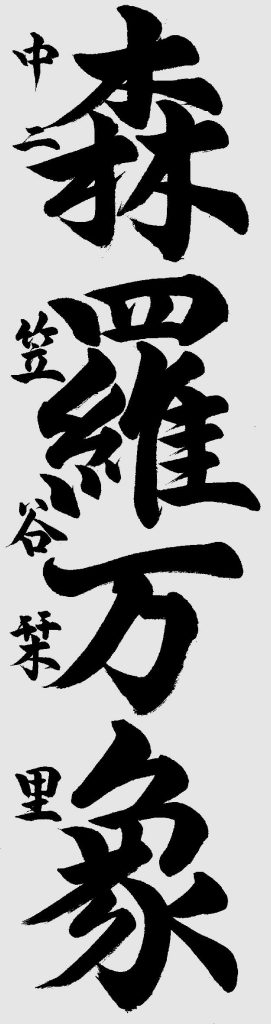 森羅万象
中二 笠谷栞里